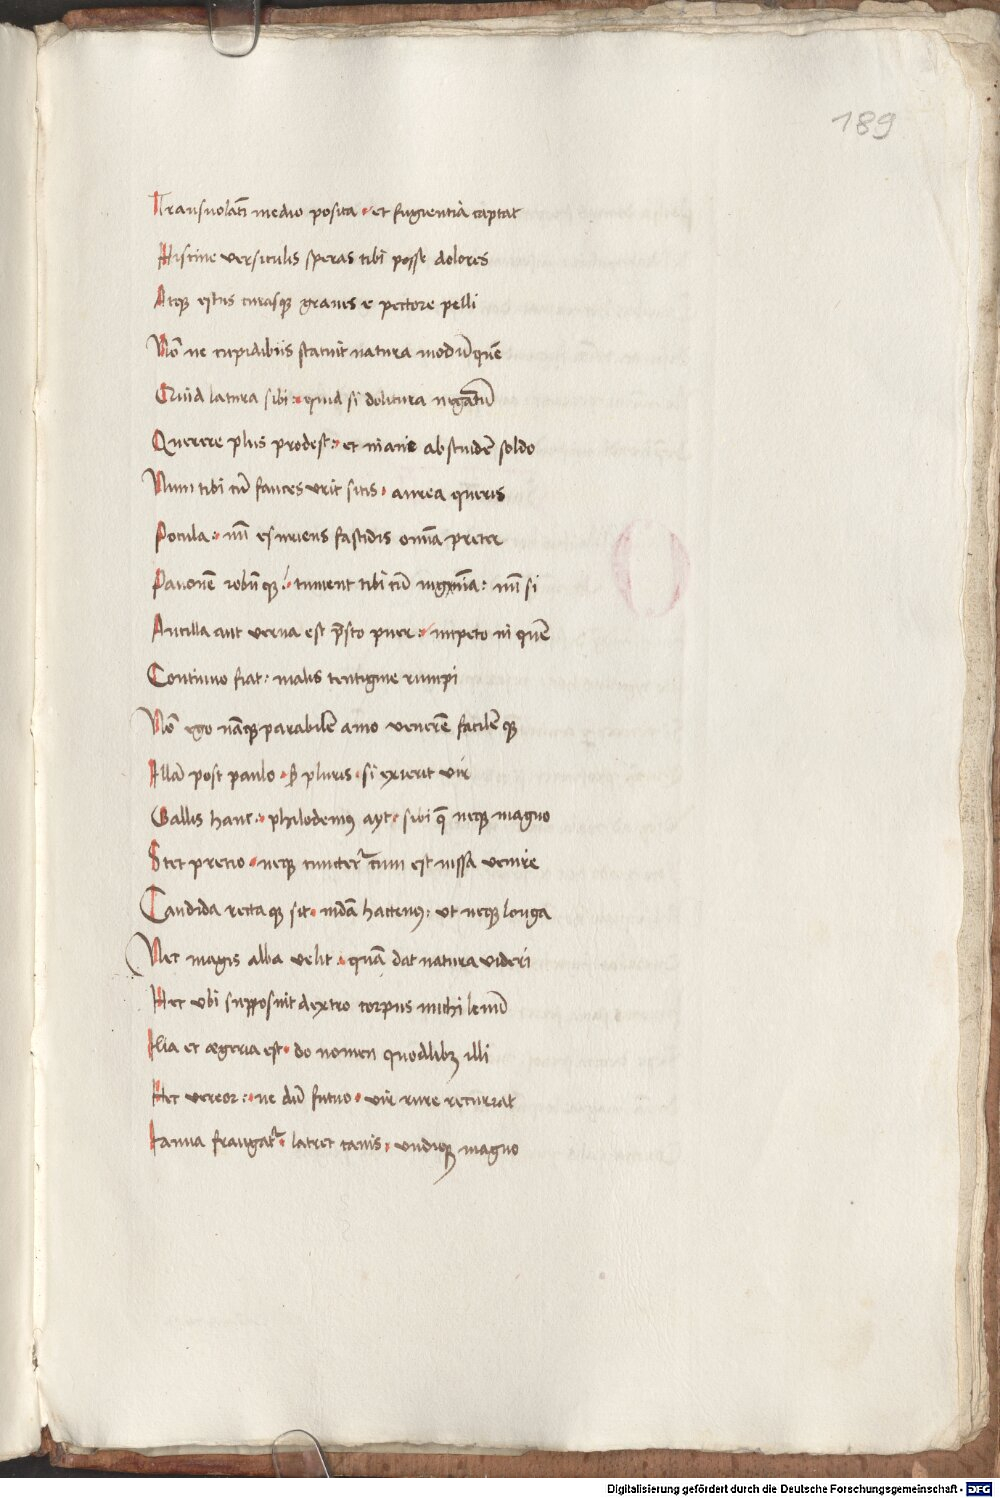 189
Transuolat̄ in medio posita · et fugientia captat
Hiscine versiculis speras tibi posse dolores
Atqꝫ estus curasqꝫ graues e pectore pelli
Nō ne cupidibus statuit natura modū quē
Quid latura sibi : quid si dolitura negatū
Querere plus prodest : et inane abscindē soldo
Num tibi cū fauces vrit sitis · aurea queris
Pocula : nū esuriens fastidis omīa preter
Pauonē robūqꝫ : tument tibi cū ingīna : nū si
Ancilla aut verna est p̄sto puer : impeto in quē
Continuo fiat : malis tentigine rumpi
Nō ego nāqꝫ parabilē amo venerē facilēqꝫ
Illā post paulo · s̄ pluris · si exierit vir
Gallis hanc : philodemꝰ ayt · sibi q̄ neqꝫ magno
Stet precio · neqꝫ cuncter̄ cum est iussa venire
Candida rectaqꝫ sit · mūda hactenꝰ : vt neqꝫ longa
Nec magis alba velit · quā dat natura videri
Hec vbi supposuit dextro corpus michi leuū
Ilia et ægeria est · do nomen quodlibꝫ illi
Nec vereor : ne dū futuo · vir rure recurrat
Ianua frangat̄ · latret canis · vndiqꝫ magno
Digitalisierung gefördert durch die Deutsche Forschungsgemeinschaft - DFG